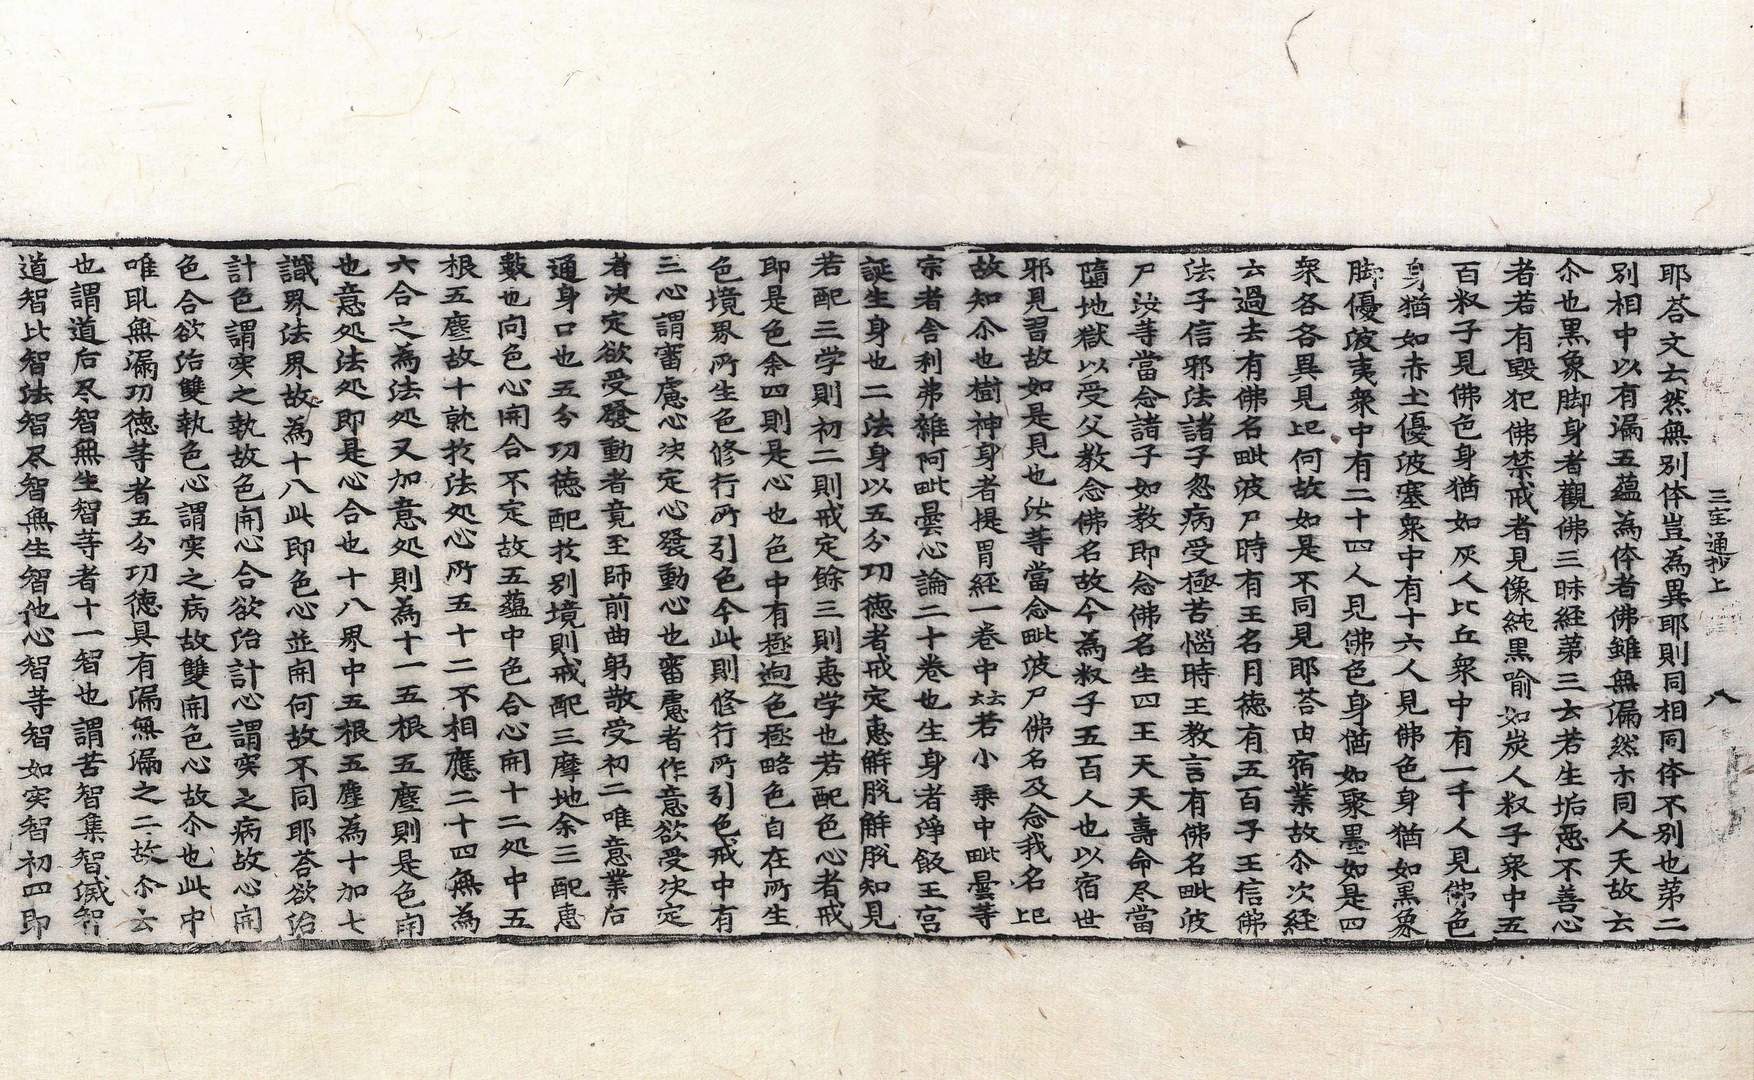 三宝通抄上　八
耶荅文云然無別体豈為異耶則同相同体不別也苐二
別相中以有漏五蘊為体者佛雖無漏然亦同人天故云
尒也黒象脚身者觀佛三昧経苐三云若生垢惡不善心
者若有毀犯佛禁戒者見像純黒喻如炭人䆁子衆中五
百䆁子見佛色身猶如灰人比丘衆中有一千人見佛色
身猶如赤土優波塞衆中有十六人見佛色身猶如黒象
脚優波夷衆中有二十四人見佛色身猶如聚墨如是四
衆各各異見巳何故如是不同見耶荅由宿業故尒次経
六過去有佛名毗波尸時有王名月德有五百子王信佛
法子信邪法諸子忽病受極苦惱時王教言有佛名毗波
尸汝等當念諸子如教即念佛名生四王天天壽命尽當
墮地獄以受父教念佛名故今為䆁子五百人也以宿世
邪見習故如是見也汝等當念毗波尸佛名及念我名巳
故知尒也樹神身者提胃経一卷中云云若小乗中毗曇等
宗者舍利弗雜阿毗曇心論二十卷也生身者淨飯王宮
誕生身也二法身以五分功德者戒定恵解脫解脫知見
若配三学則初二則戒定餘三則恵学也若配色心者戒
即是色余四則是心也色中有極逈色極略色自在所生
色境界所生色修行所引色今此則修行所引色戒中有
三心謂審慮心決定心發動心也審慮者作意欲受決定
者決定欲受發動者竟至師前曲躬敬受初二唯意業后
通身口也五分功德配於別境則戒配三摩地余三配恵
藪也向色心開合不定故五蘊中色合心開十二処中五
根五塵故十就於法処心所五十二不相應二十四無為
六合之為法処又加意処則為十一五根五塵則是色開
也意処法処即是心合也十八界中五根五塵為十加七
識界法界故為十八此即色心並開何故不同耶荅欲治
計色謂实之執故色開心合欲治計心謂实之病故心開
色合欲治雙執色心謂实之病故雙開色心故尒也此中
唯取無漏功德等者五分功德具有漏無漏之二故尒云
也謂道后尽智無生智等者十一智也謂苦智集智滅智
道智比智法智尽智無生智他心智等智如实智初四即